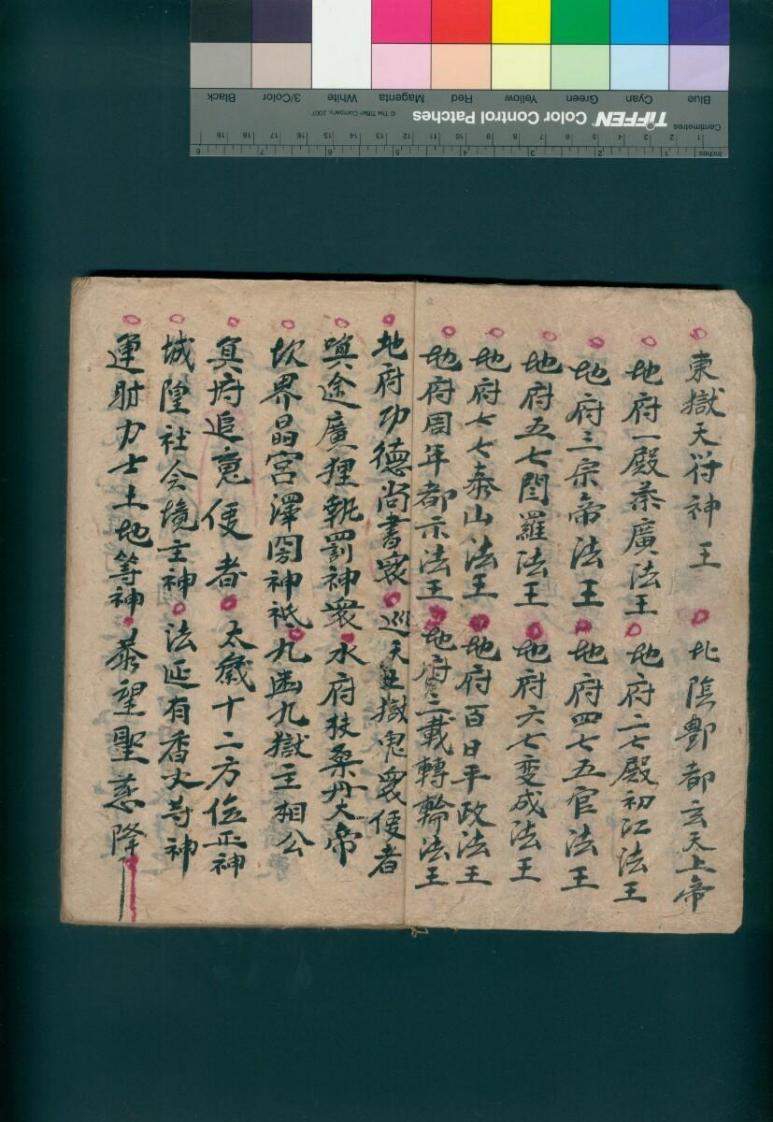 Blue Cyan Green Yellow Red Magenta White 3/Color Black
TIFFEN Color Control Patches © The Tiffen Company, 2007
Centimetres 1 2 3 4 5 6 7 8 9 10 11 12 13 14 15 16 17 18
Inches
東獄天符神王 北陰酆都玄天上帝
地府一殿秦廣法王 地府二七殿初江法王
地府三宗帝法王 地府四七五官法王
地府五七閻羅法王 地府六七変成法王
地府七七泰山法王 地府百日平政法王
地府周年都示法王 地府三載轉輪法王
地府功德尚書眾 巡天獄鬼眾使者
嗔途廣狸執罰神眾 水府扶桑丹大帝
坎界晶宮澤囦神祇 九幽九獄主相公
冥府追䰟使者 太歲十二方位正神
城隍社令境主神 法延有香火等神
運財力士土地等神 恭望聖慈降